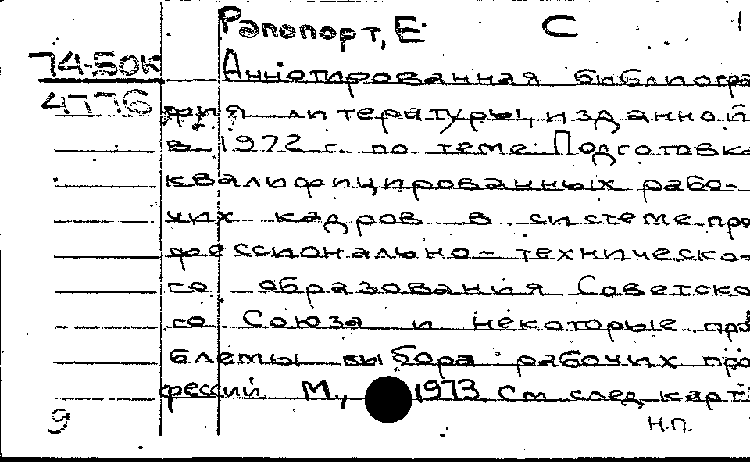 Рапопорт, Е. С
74-50К Аннотированная библиогра
4776 фия литературы, изданной
в 1972 г. по теме: Подготовка
квалифицированных рабо-
чих кадров в системе про
фессионально-техническо-
го образования Советско
го Союза и некоторые про
блемы выбора рабочих про
фессий М., 1973 См след карт
9 Н.П.